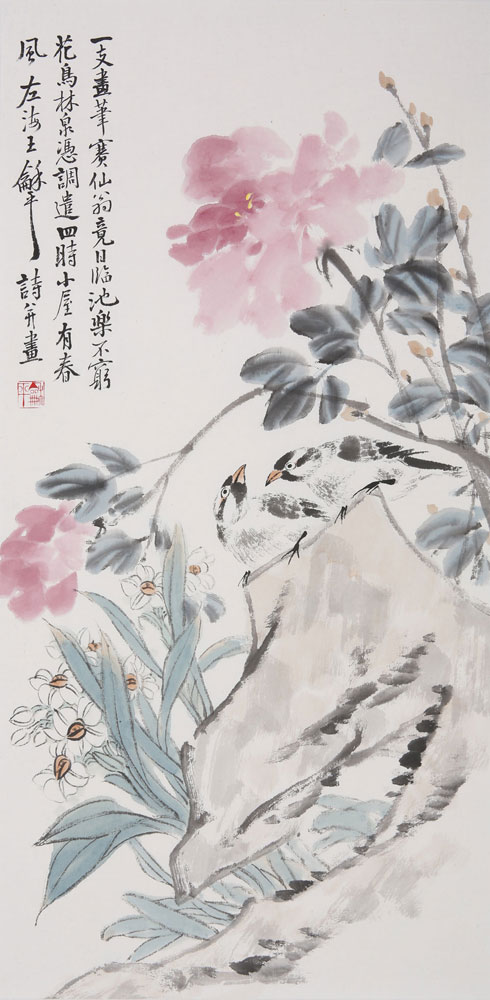 一支畫筆賽仙翁竟日臨池樂不窮
花鳥林泉憑調遣四時小屋有春
風 左海王龢平詩并畫